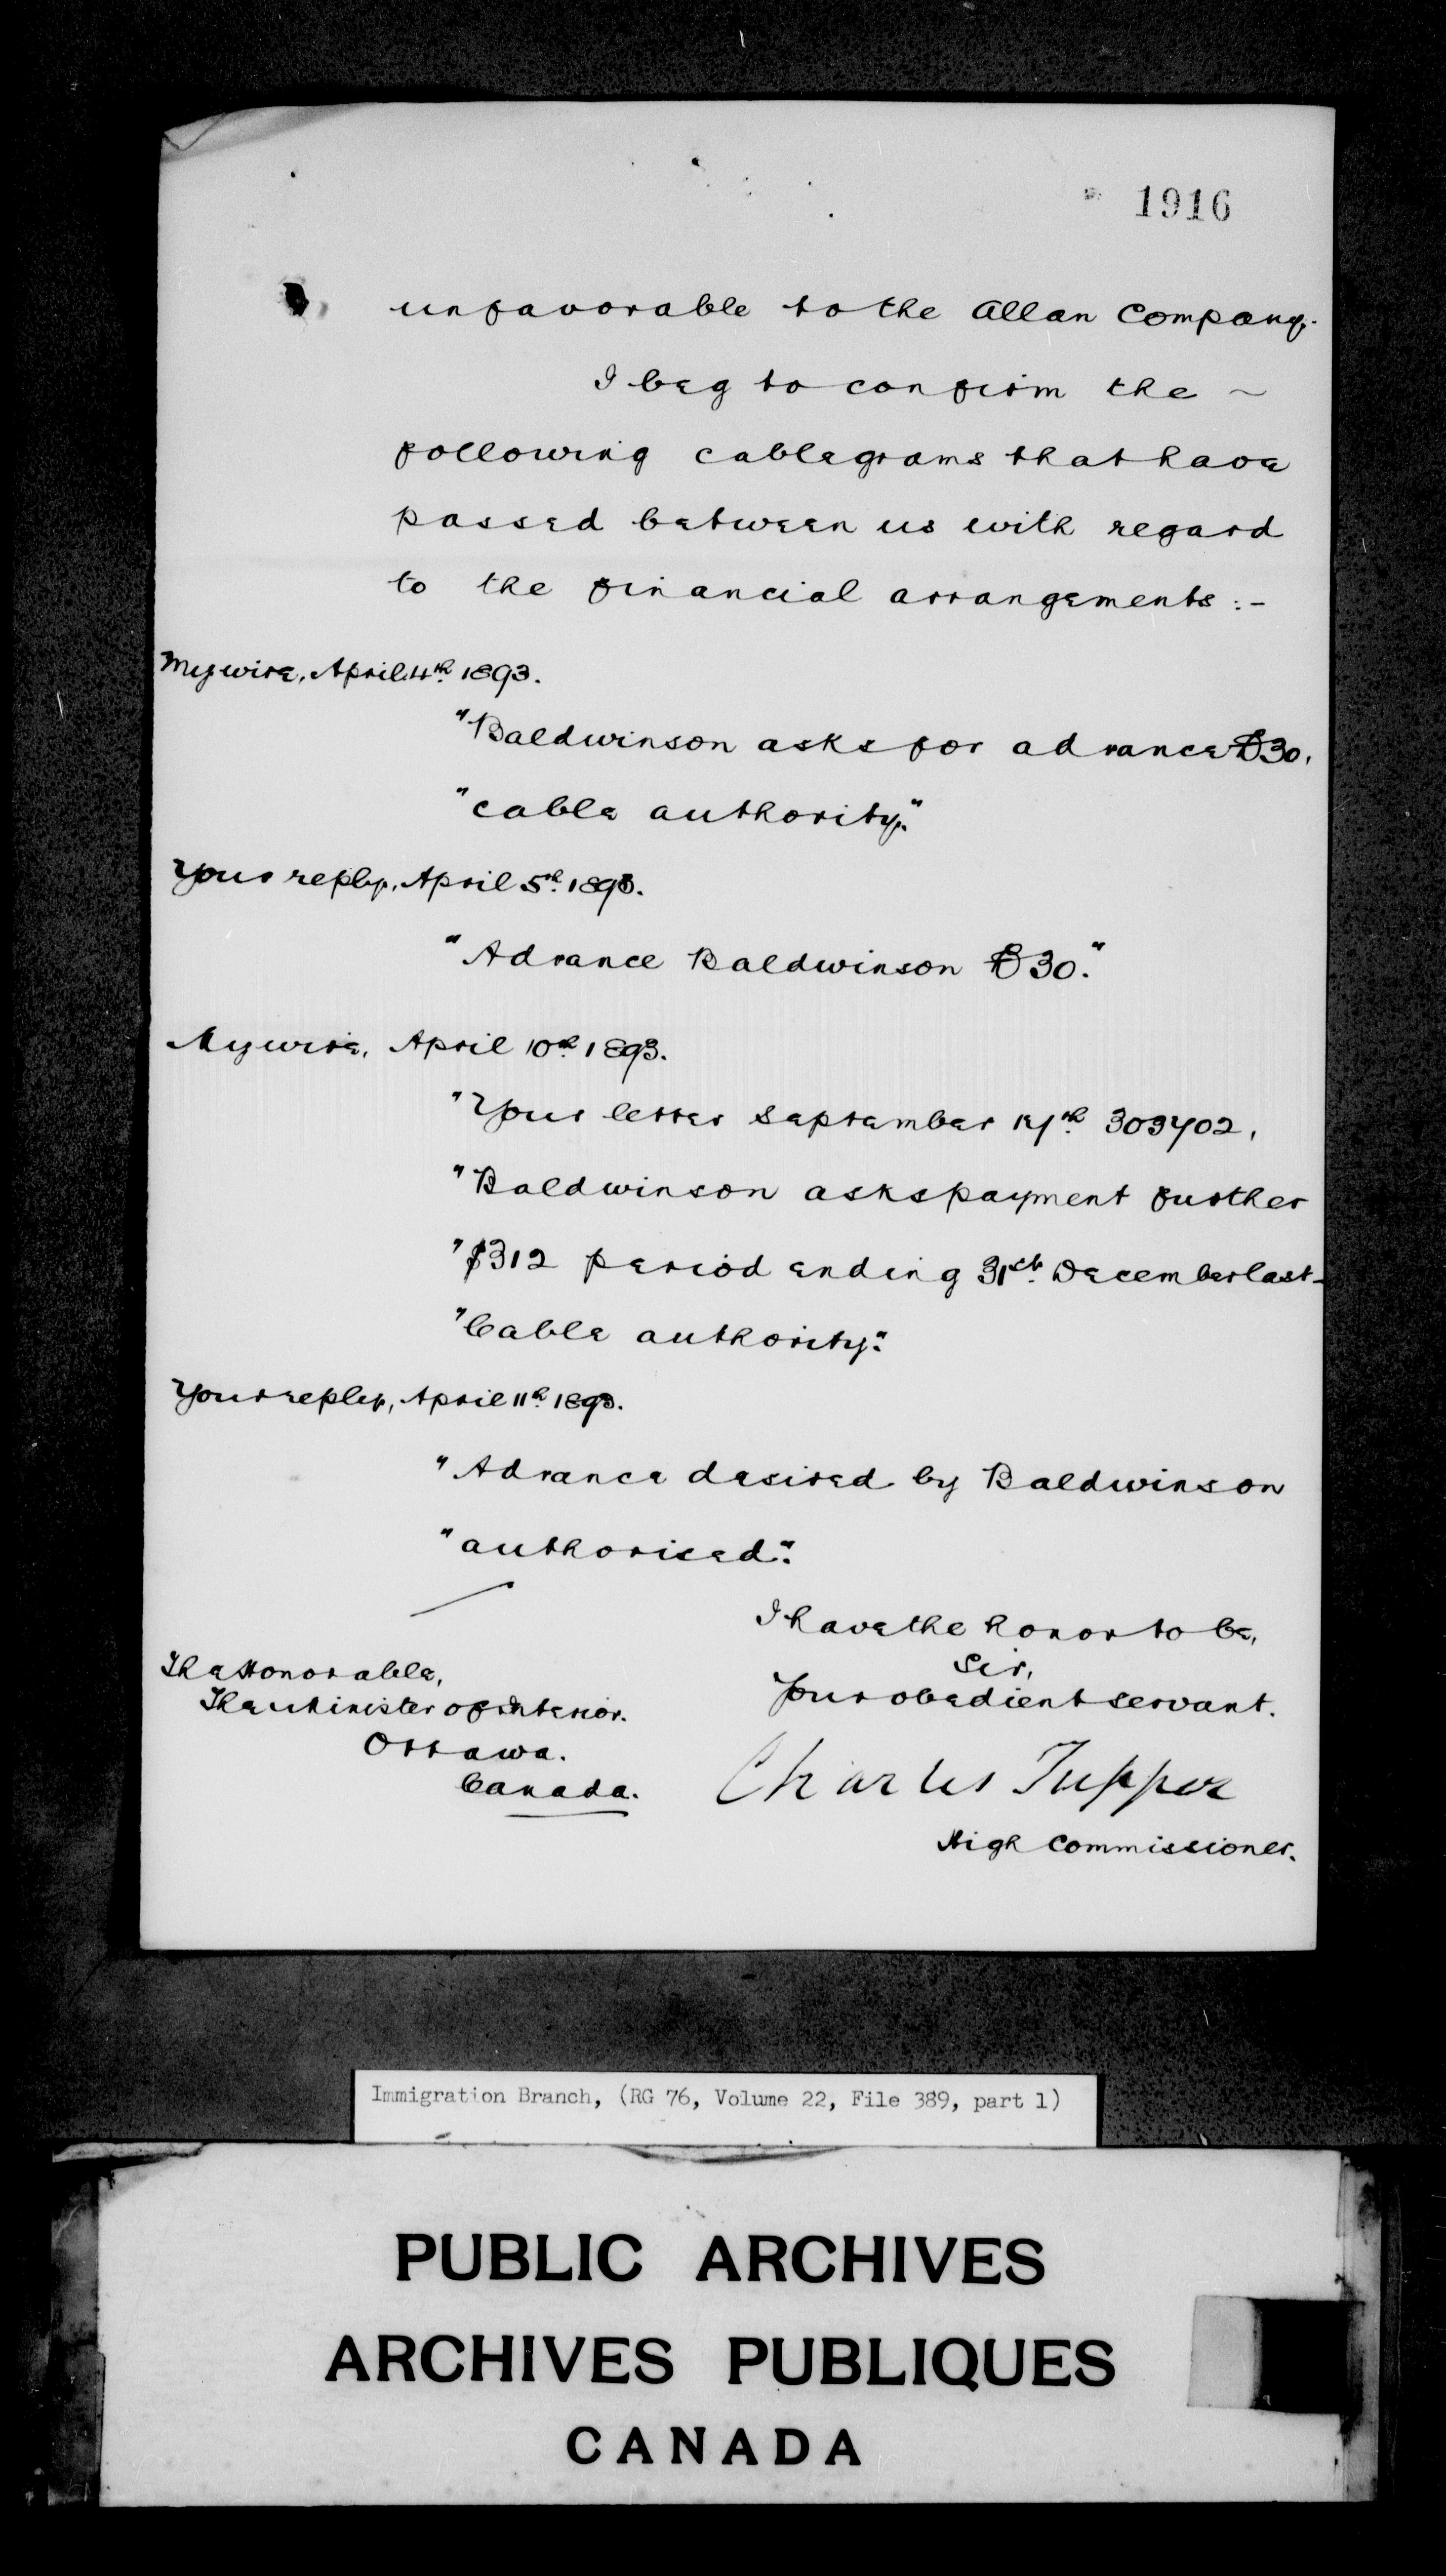 1916
unfavorable to the Allan Company.
I beg to confirm the ~
following cablegrams that have
passed between us with regard
to the financial arrangements:-
My wire, April 4th 1893.
"Baldwinson asks for advance £30,
"cable authority."
Your reply, April 5th 1893.
"Advance Baldwinson £30."
My wire, April 10th 1893.
"Your letter September 17th 303702,
"Baldwinson asks payment further
"$312 period ending 31st December last-
"Cable authority."
Your reply, April 11th 1893.
"Advance desired by Baldwinson
"authorised."
I have the honor to be,
Sir,
Your obedient servant.
Charles Tupper
High Commissioner.
The Honorable,
The Minister of Interior.
Ottawa.
Canada.
Immigration Branch, (RG 76, Volume 22, File 389, part 1)
PUBLIC ARCHIVES
ARCHIVES PUBLIQUES
CANADA